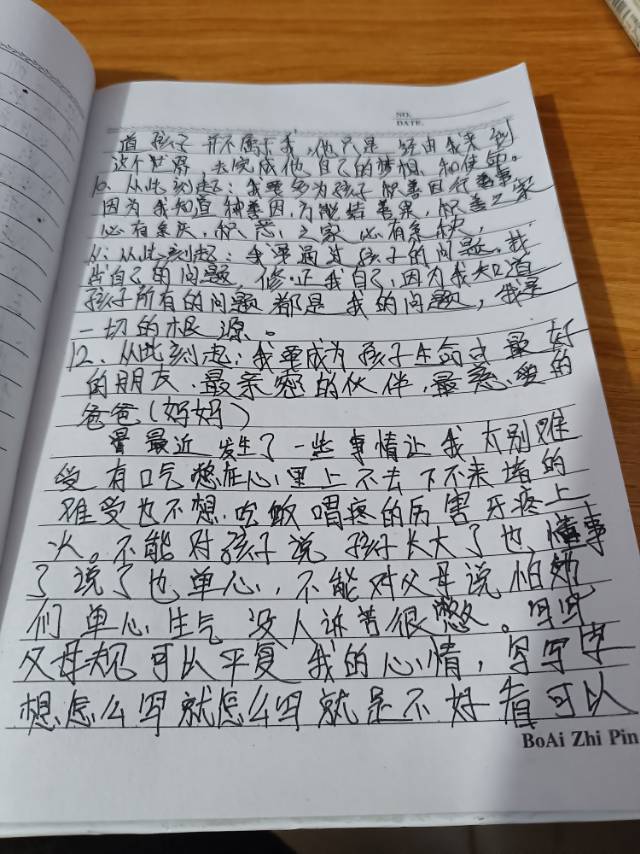 NO.
DATE.
道孩子并不属于我,他只是经由我来到
这个世界去完成他自己的梦想和使命。
10、从此刻起:我要多为孩子积善因行善事
因为我知道种善因,方能结善果,积善之家
必有余庆,积恶之家必有余秧,
11:从此刻起:我要通过孩子的问题,找
出自己的问题 修正我自己,因为我知道
孩子所有的问题都是我的问题,我是
一切的根源。
12、从此刻起:我要成为孩子生命中最好
的朋友,最亲密的伙伴,最慈爱的
爸爸(妈妈)
最近发生了一些事情让我太别难
受有口气憋在心里上不去下不来堵的
难受也不想吃饭 疼的历害牙疼上
火。不能对孩子说 孩子长大了也懂事
了说了也单心,不能对父母说怕她
们单心生气 没人诉苦很憋。写写
父母规可以平复我的心情,写写字
想怎么写就怎么写就是不好看可以
BoAi Zhi Pin